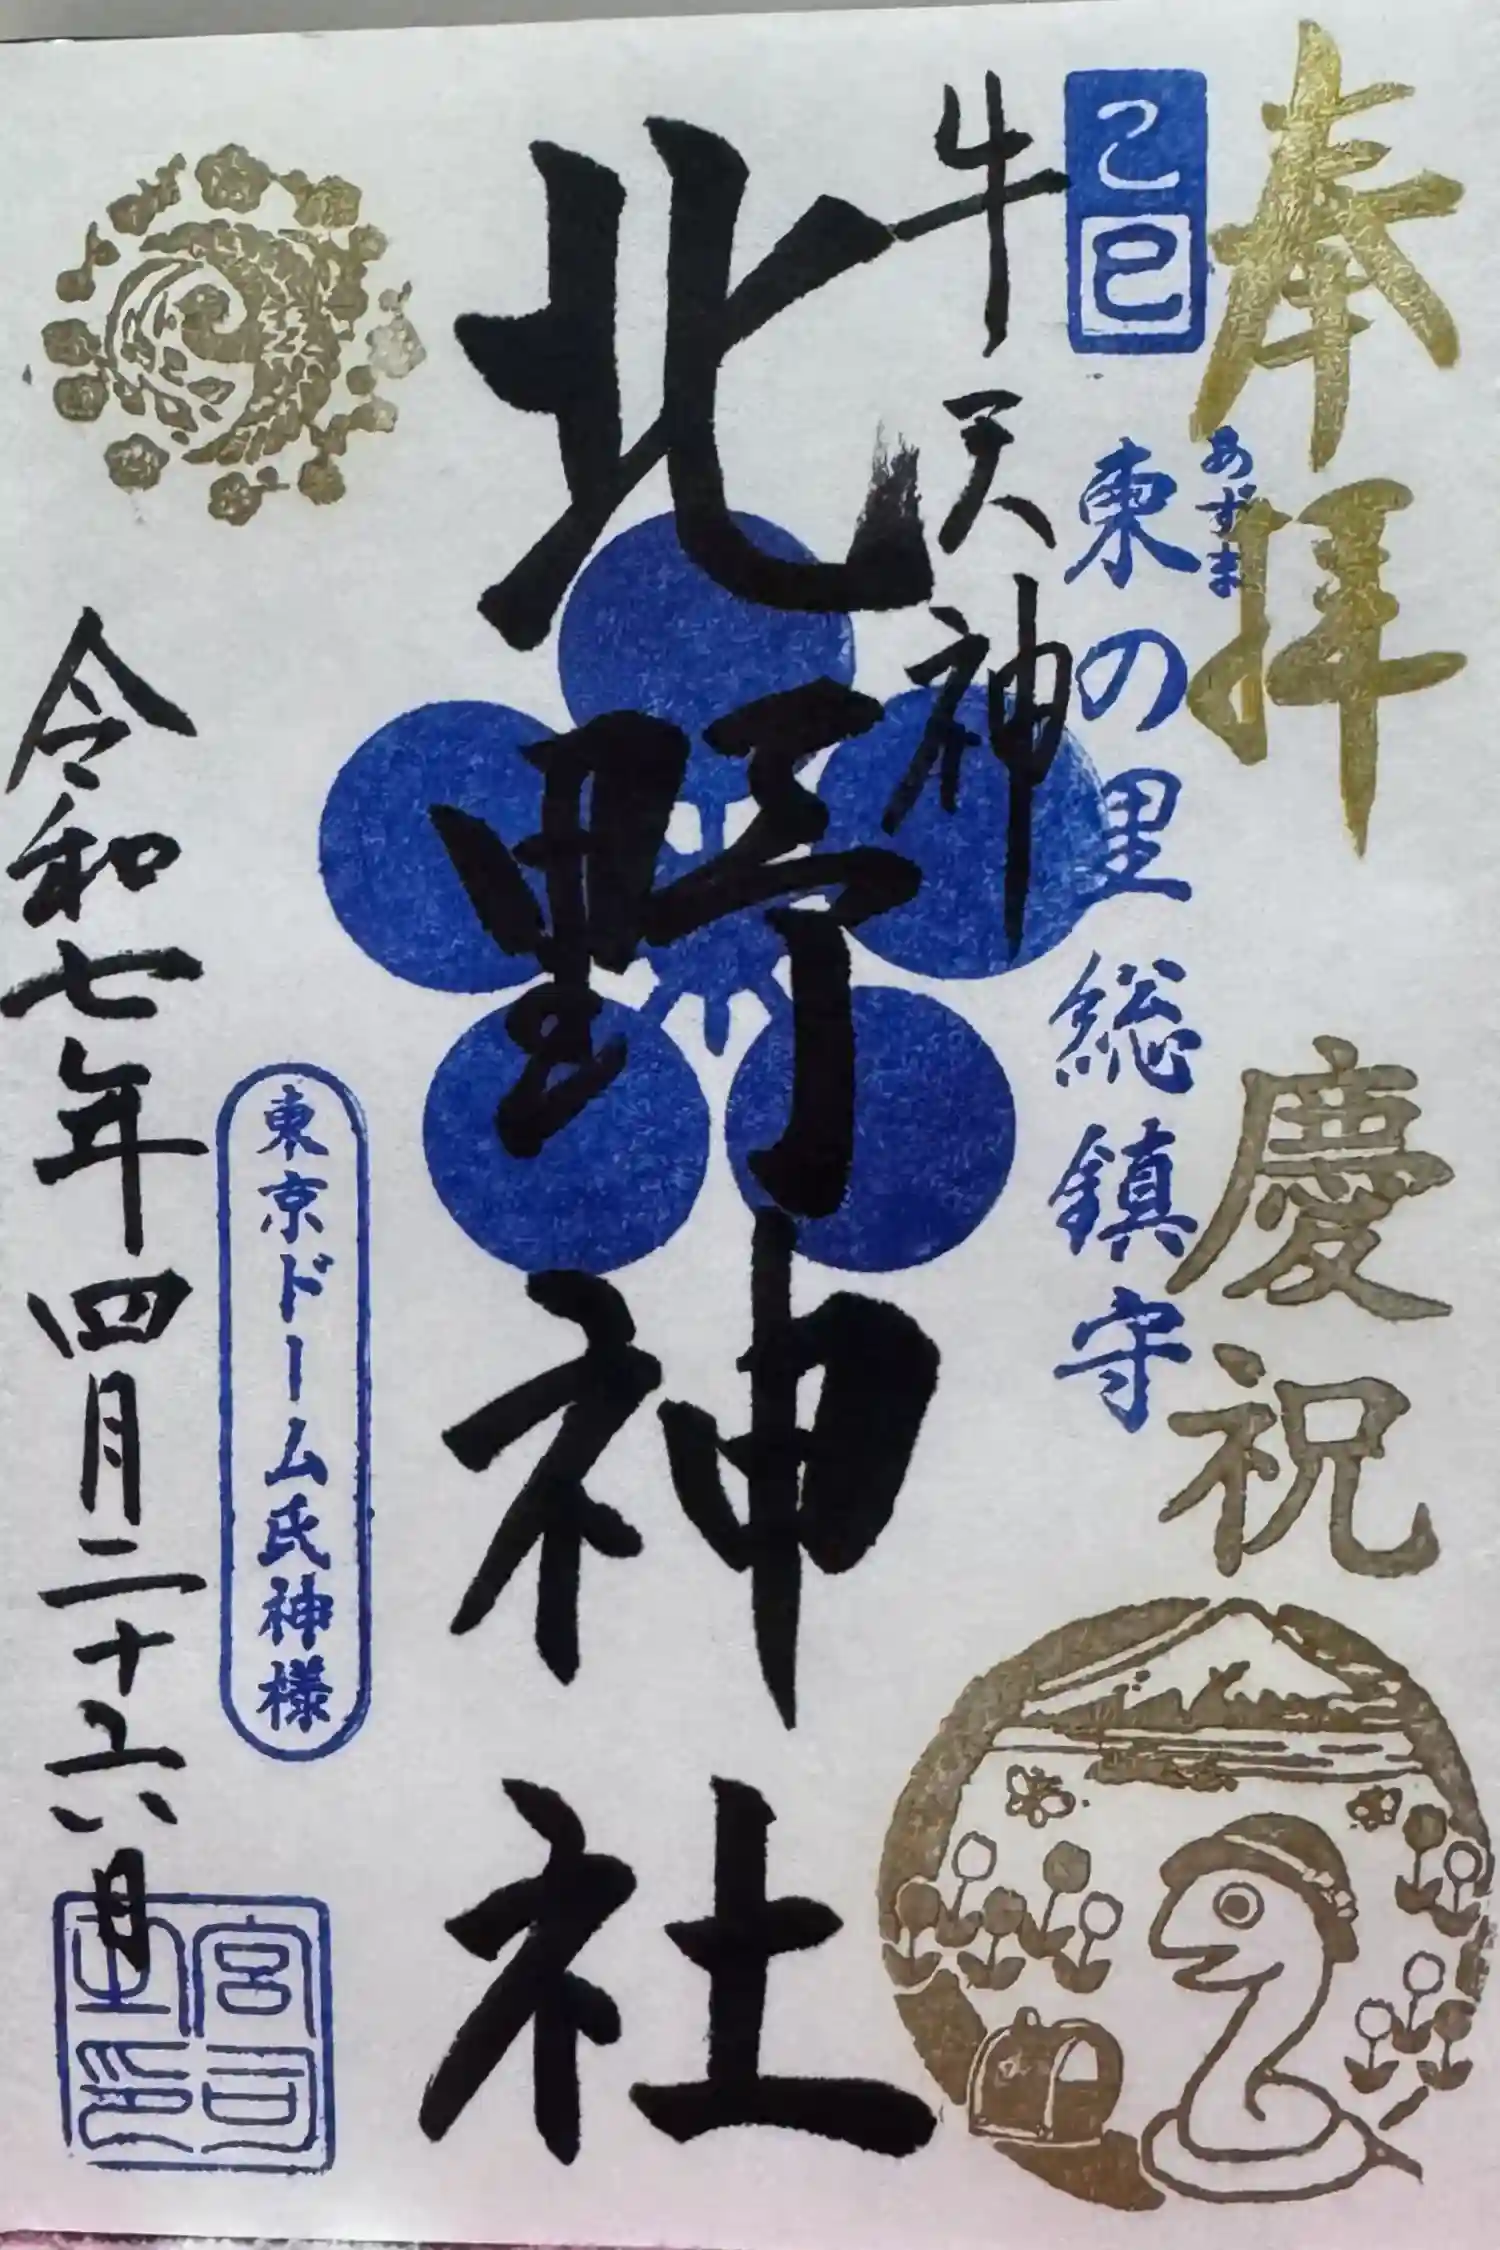 奉拝
慶祝
己巳
あずま
東の里総鎮守
牛天神
北野神社
東京ドーム氏神様
令和七年四月二十六日
宮司之印